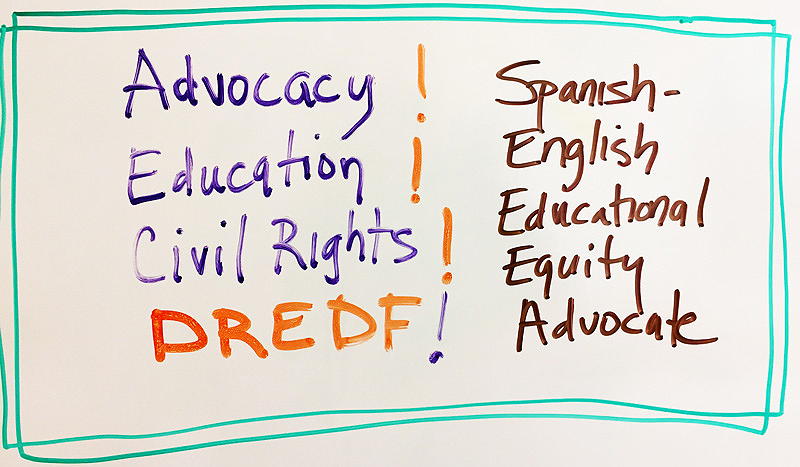 Advocacy!
Education!
Civil Rights!
DREDF!
Spanish-
English
Educational
Equity
Advocate